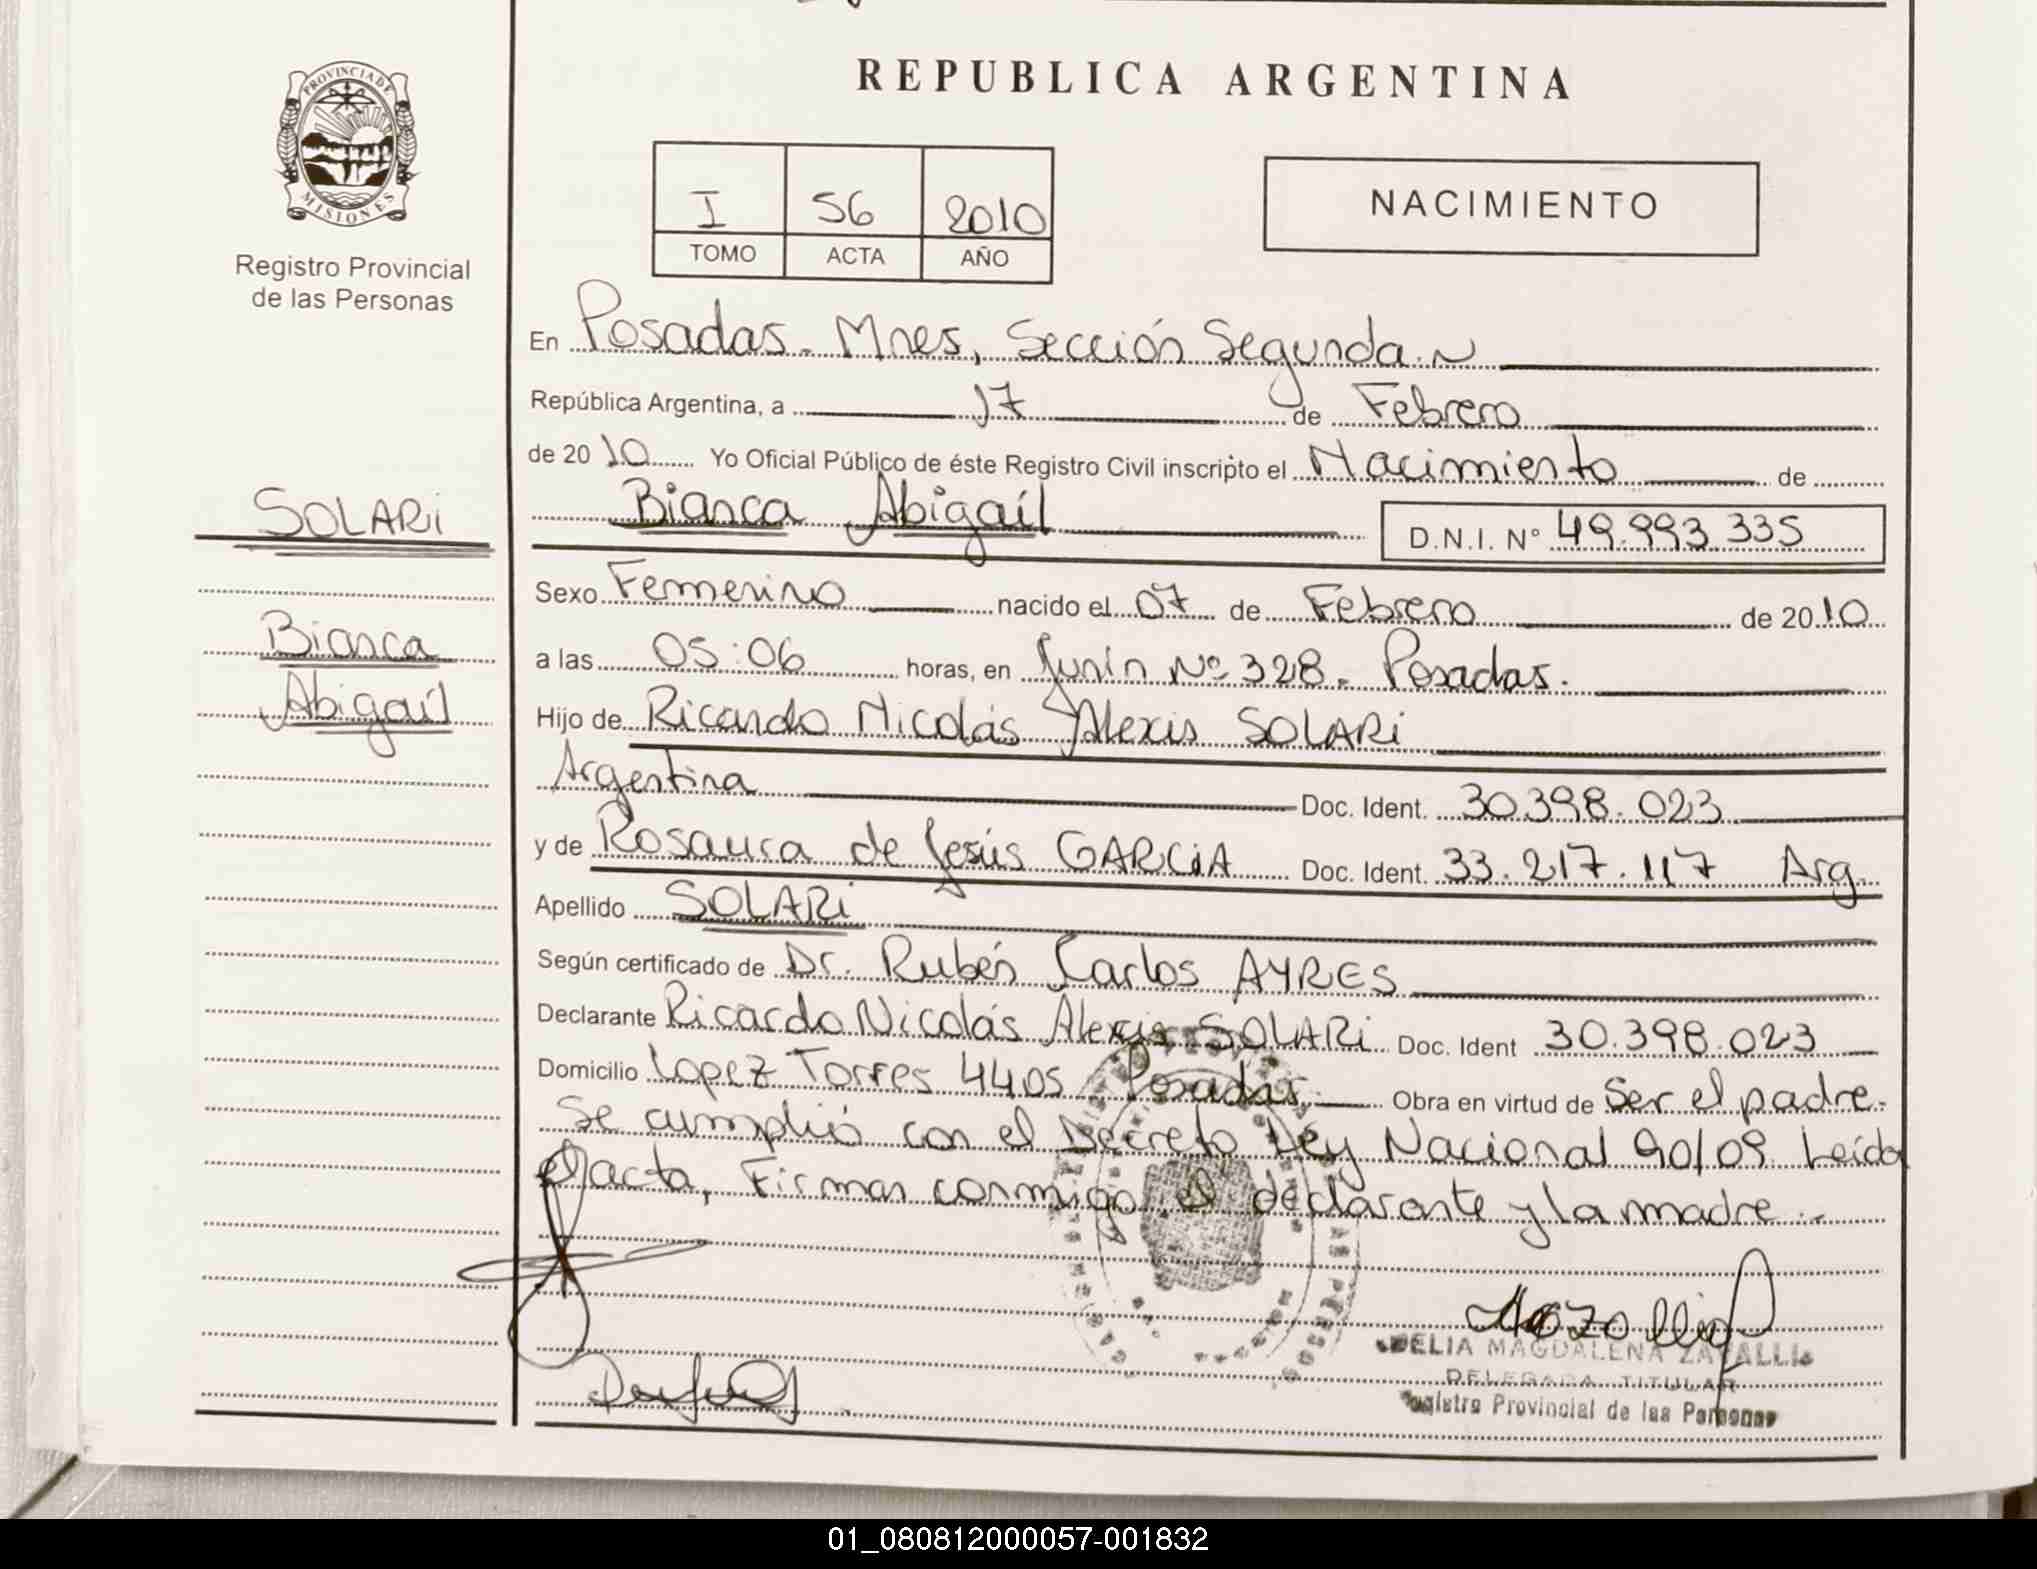 PROVINCIA DE
MISIONES
Registro Provincial
de las Personas
SOLARi
Bianca
Abigaíl
REPUBLICA ARGENTINA
I 56 2010
TOMO ACTA AÑO
NACIMIENTO
En Posadas. Mnes, Sección Segunda.
República Argentina, a 17 de Febrero
de 2010 Yo Oficial Público de éste Registro Civil inscripto el Nacimiento de
Bianca Abigaíl D.N.I. N° 49.993.335
Sexo Femenino nacido el 07 de Febrero de 2010
a las 05:06 horas, en Junín Nº 328. Posadas.
Hijo de Ricardo Nicolás Alexis SOLARi
Argentina Doc. Ident. 30.398.023
y de Rosaura de Jesús GARCiA Doc. Ident. 33.217.117 Arg.
Apellido SOLARi
Según certificado de Dr. Rubén Carlos AYRES
Declarante Ricardo Nicolás Alexis SOLARi Doc. Ident 30.398.023
Domicilio Lopez Torres 4405 Posadas. Obra en virtud de Ser el padre.
Se cumplió con el Decreto Ley Nacional 90/09. Leída
el acta, Firman conmigo el declarante y la madre.
DELIA MAGDALENA ZAPALLI
DELEGADA TITULAR
Registro Provincial de las Personas
01_080812000057-001832